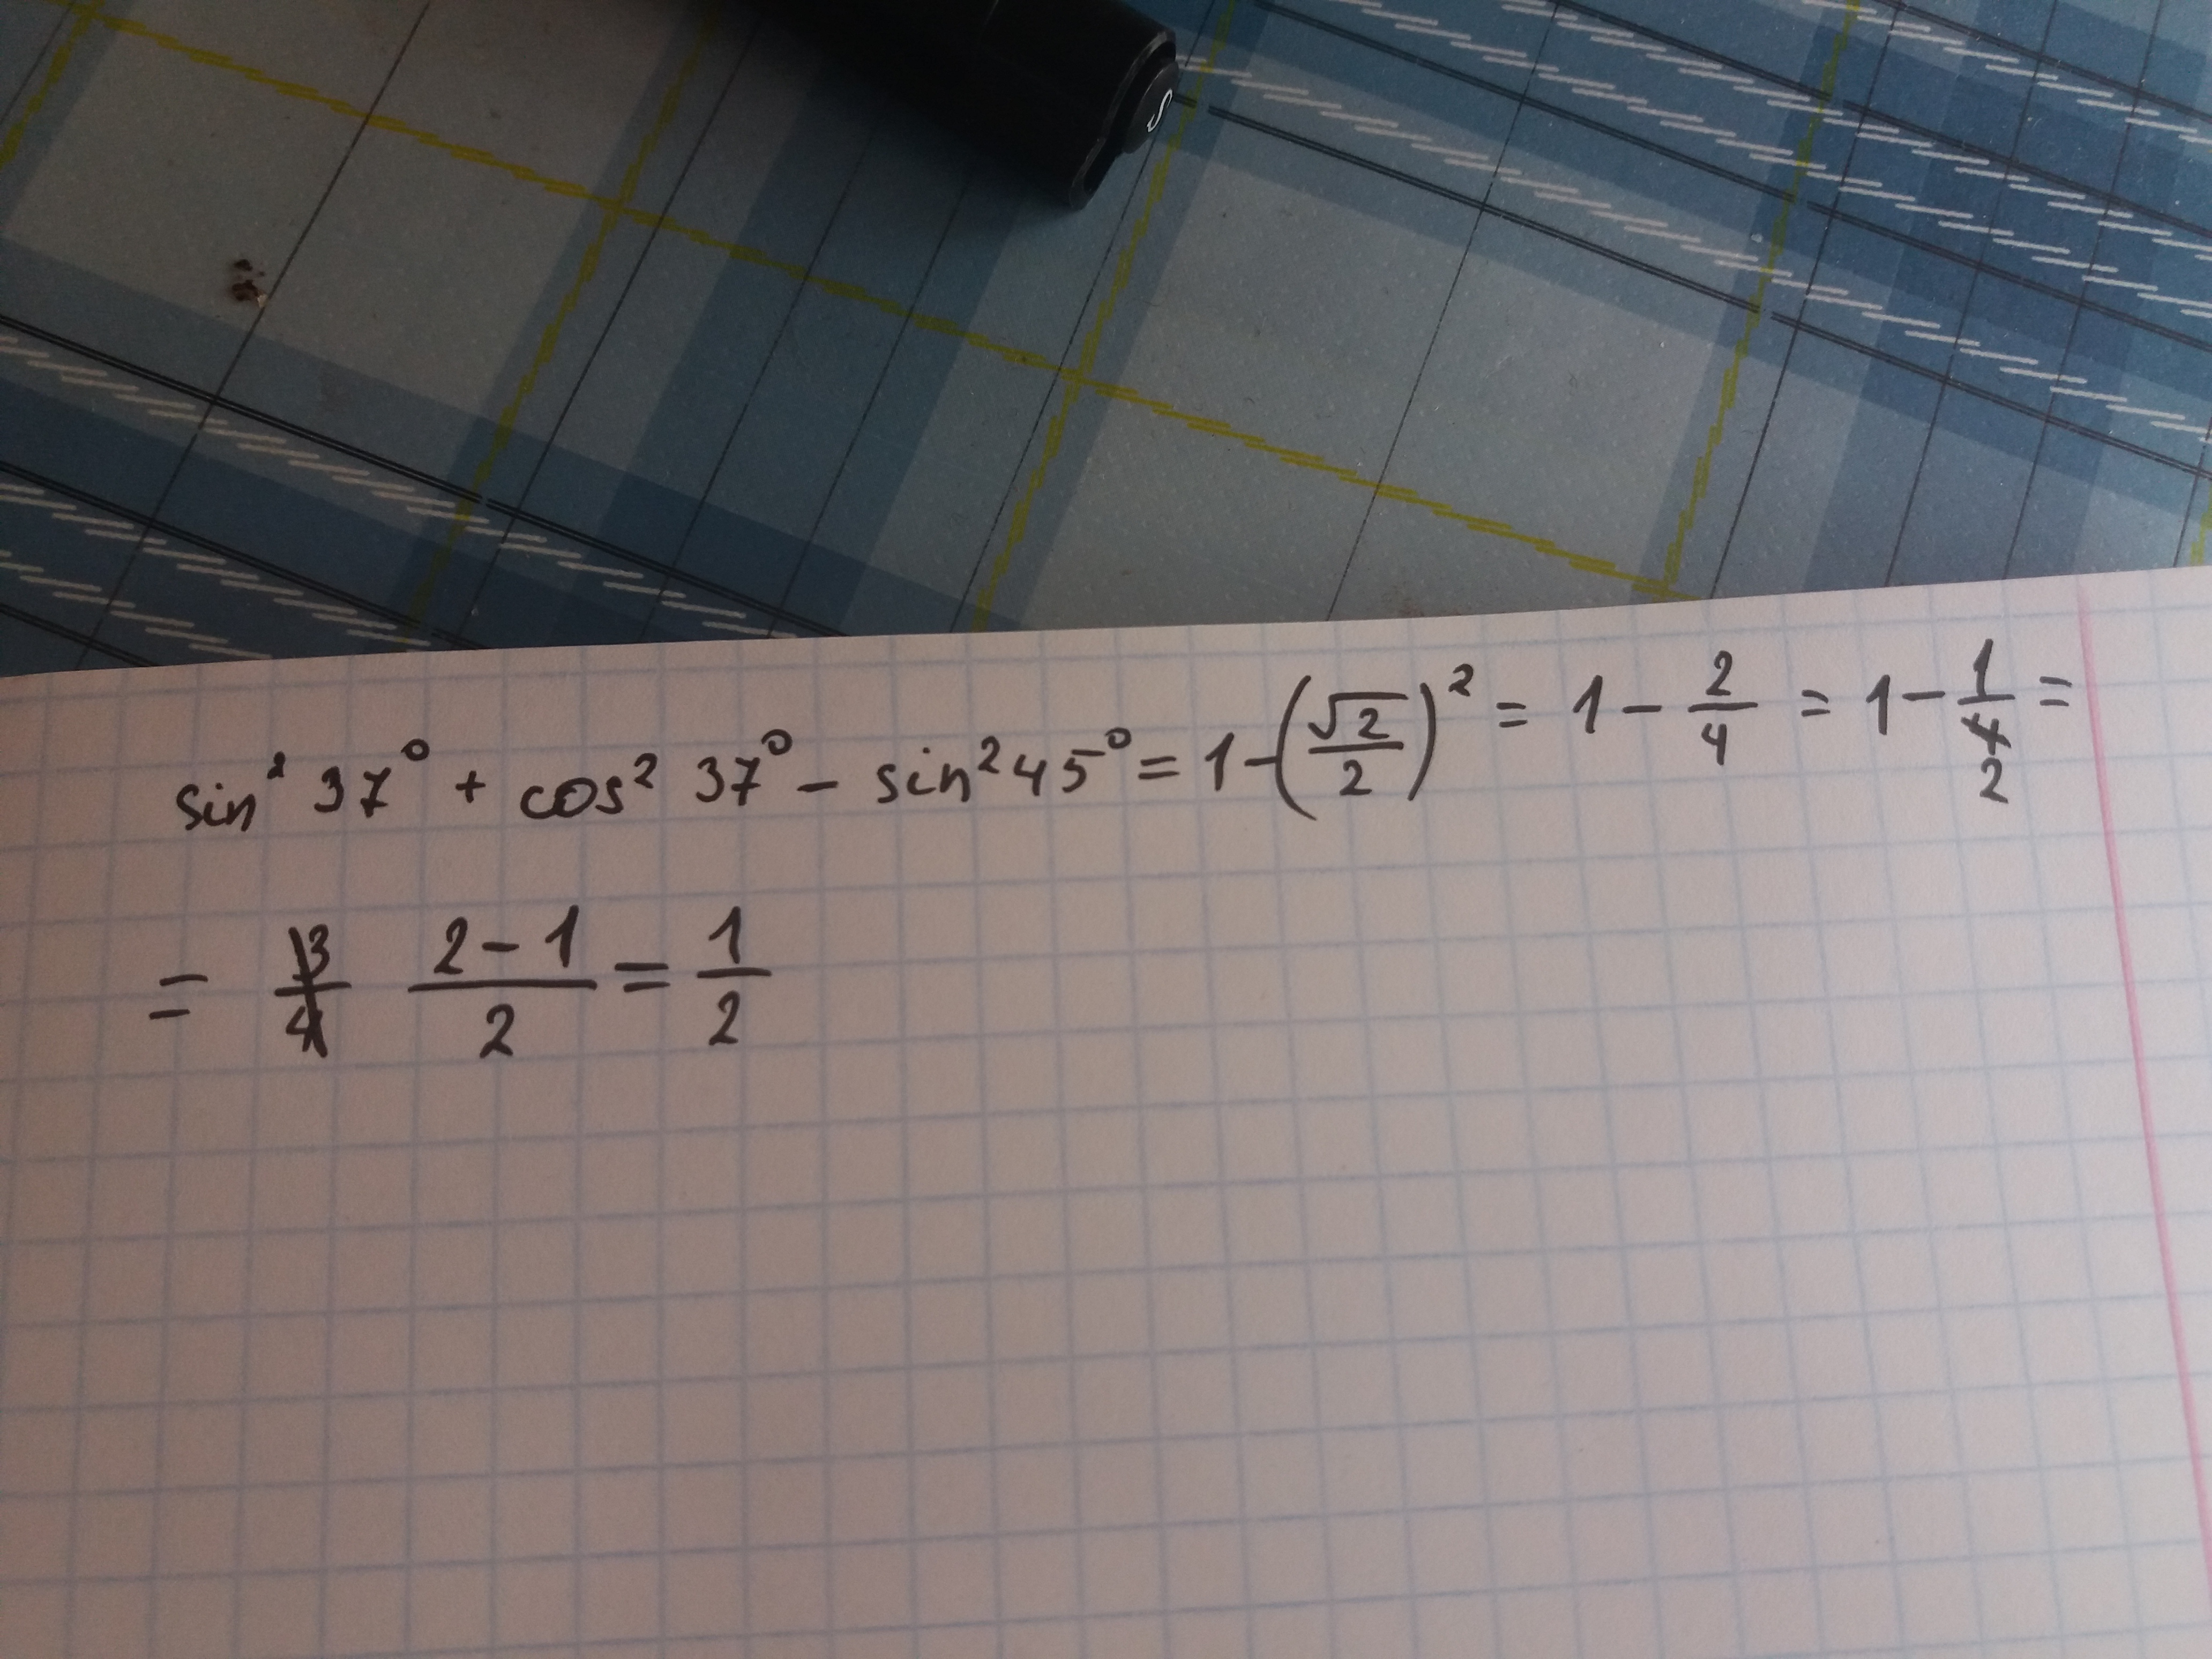 sin² 37° + cos² 37° - sin² 45° = 1 - (√2/2)² = 1 - 2/4 = 1 - 1/2 =
= (2-1)/2 = 1/2